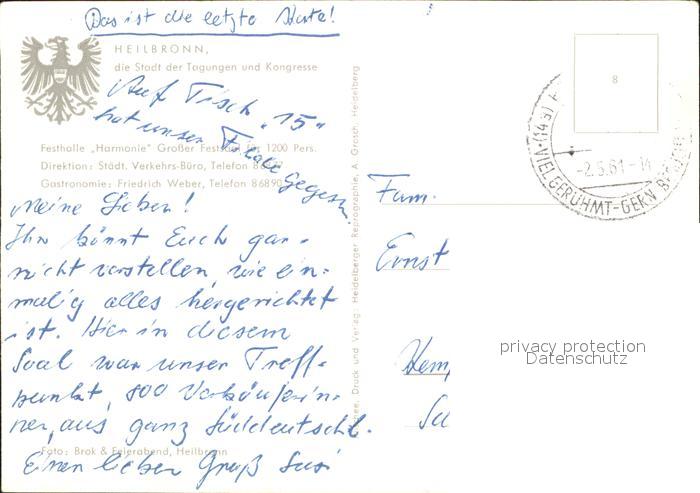 Das ist die letzte Karte!
HEILBRONN,
die Stadt der Tagungen und Kongresse
Auf Tisch "15"
hat unser Filiale gegessen
Festhalle „Harmonie" Großer Festsaal für 1200 Pers.
Direktion: Städt. Verkehrs-Büro, Telefon
Gastronomie: Friedrich Weber, Telefon 86890
Meine Lieben!
Ihr könnt Euch gar-
nicht vorstellen, wie ein-
malig alles hergerichtet
ist. Hier in diesem
Saal war unser Treff-
punkt, 800 Verkäuferin-
nen, aus ganz Süddeutschl.
Foto: Brok & Feierabend, Heilbronn
Einen lieben Gruß Susi
Druck und Verlag: Heidelberger Reprographie, A. Grosch, Heidelberg
8
(14a)
-2.5.61-14
VIELGERÜHMT-GERN
Fam.
Ernst
privacy protection
Datenschutz